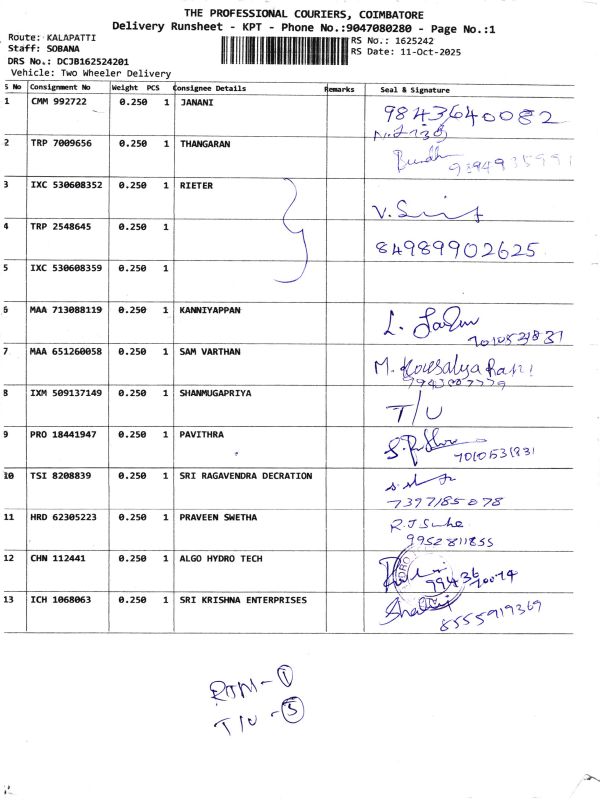 THE PROFESSIONAL COURIERS, COIMBATORE
Delivery Runsheet - KPT - Phone No.:9047080280 - Page No.:1
Route: KALAPATTI
RS No.: 1625242
Staff: SOBANA
RS Date: 11-Oct-2025
DRS No.: DCJB162524201
Vehicle: Two Wheeler Delivery
S No Consignment No Weight PCS Consignee Details Remarks Seal & Signature
1 CMM 992722 0.250 1 JANANI 9843640082
2 TRP 7009656 0.250 1 THANGARAN
3 IXC 530608352 0.250 1 RIETER
4 TRP 2548645 0.250 1 84989902625
5 IXC 530608359 0.250 1
6 MAA 713088119 0.250 1 KANNIYAPPAN
7 MAA 651260058 0.250 1 SAM VARTHAN M. Kousalya Rani
8 IXM 509137149 0.250 1 SHANMUGAPRIYA T/U
9 PRO 18441947 0.250 1 PAVITHRA
10 TSI 8208839 0.250 1 SRI RAGAVENDRA DECRATION 7397185078
11 HRD 62305223 0.250 1 PRAVEEN SWETHA
9952811855
12 CHN 112441 0.250 1 ALGO HYDRO TECH
13 ICH 1068063 0.250 1 SRI KRISHNA ENTERPRISES
8555919369
T/U - 5